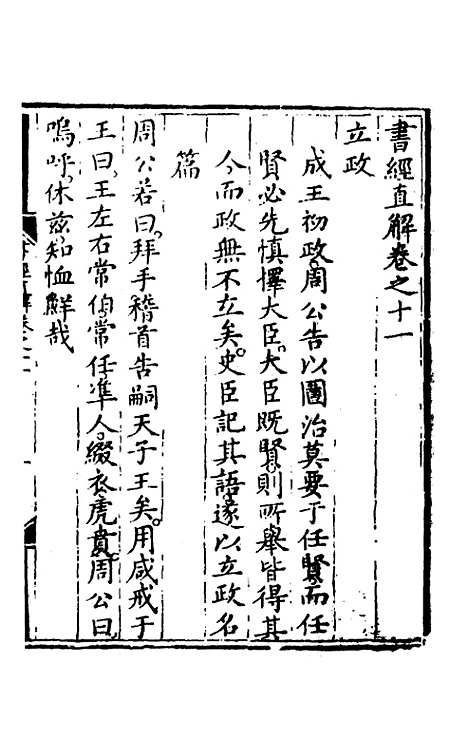 書經直解卷之十一
立政
成王初政周公告以圖治莫要于任賢而任
賢必先慎擇大臣大臣既賢則所舉皆得其
人而政無不立矣史臣記其語遂以立政名
篇
周公若曰拜手稽首告嗣天子王矣用咸戒于
王曰王左右常伯常任準人綴衣虎賁周公曰
嗚呼休茲知恤鮮哉